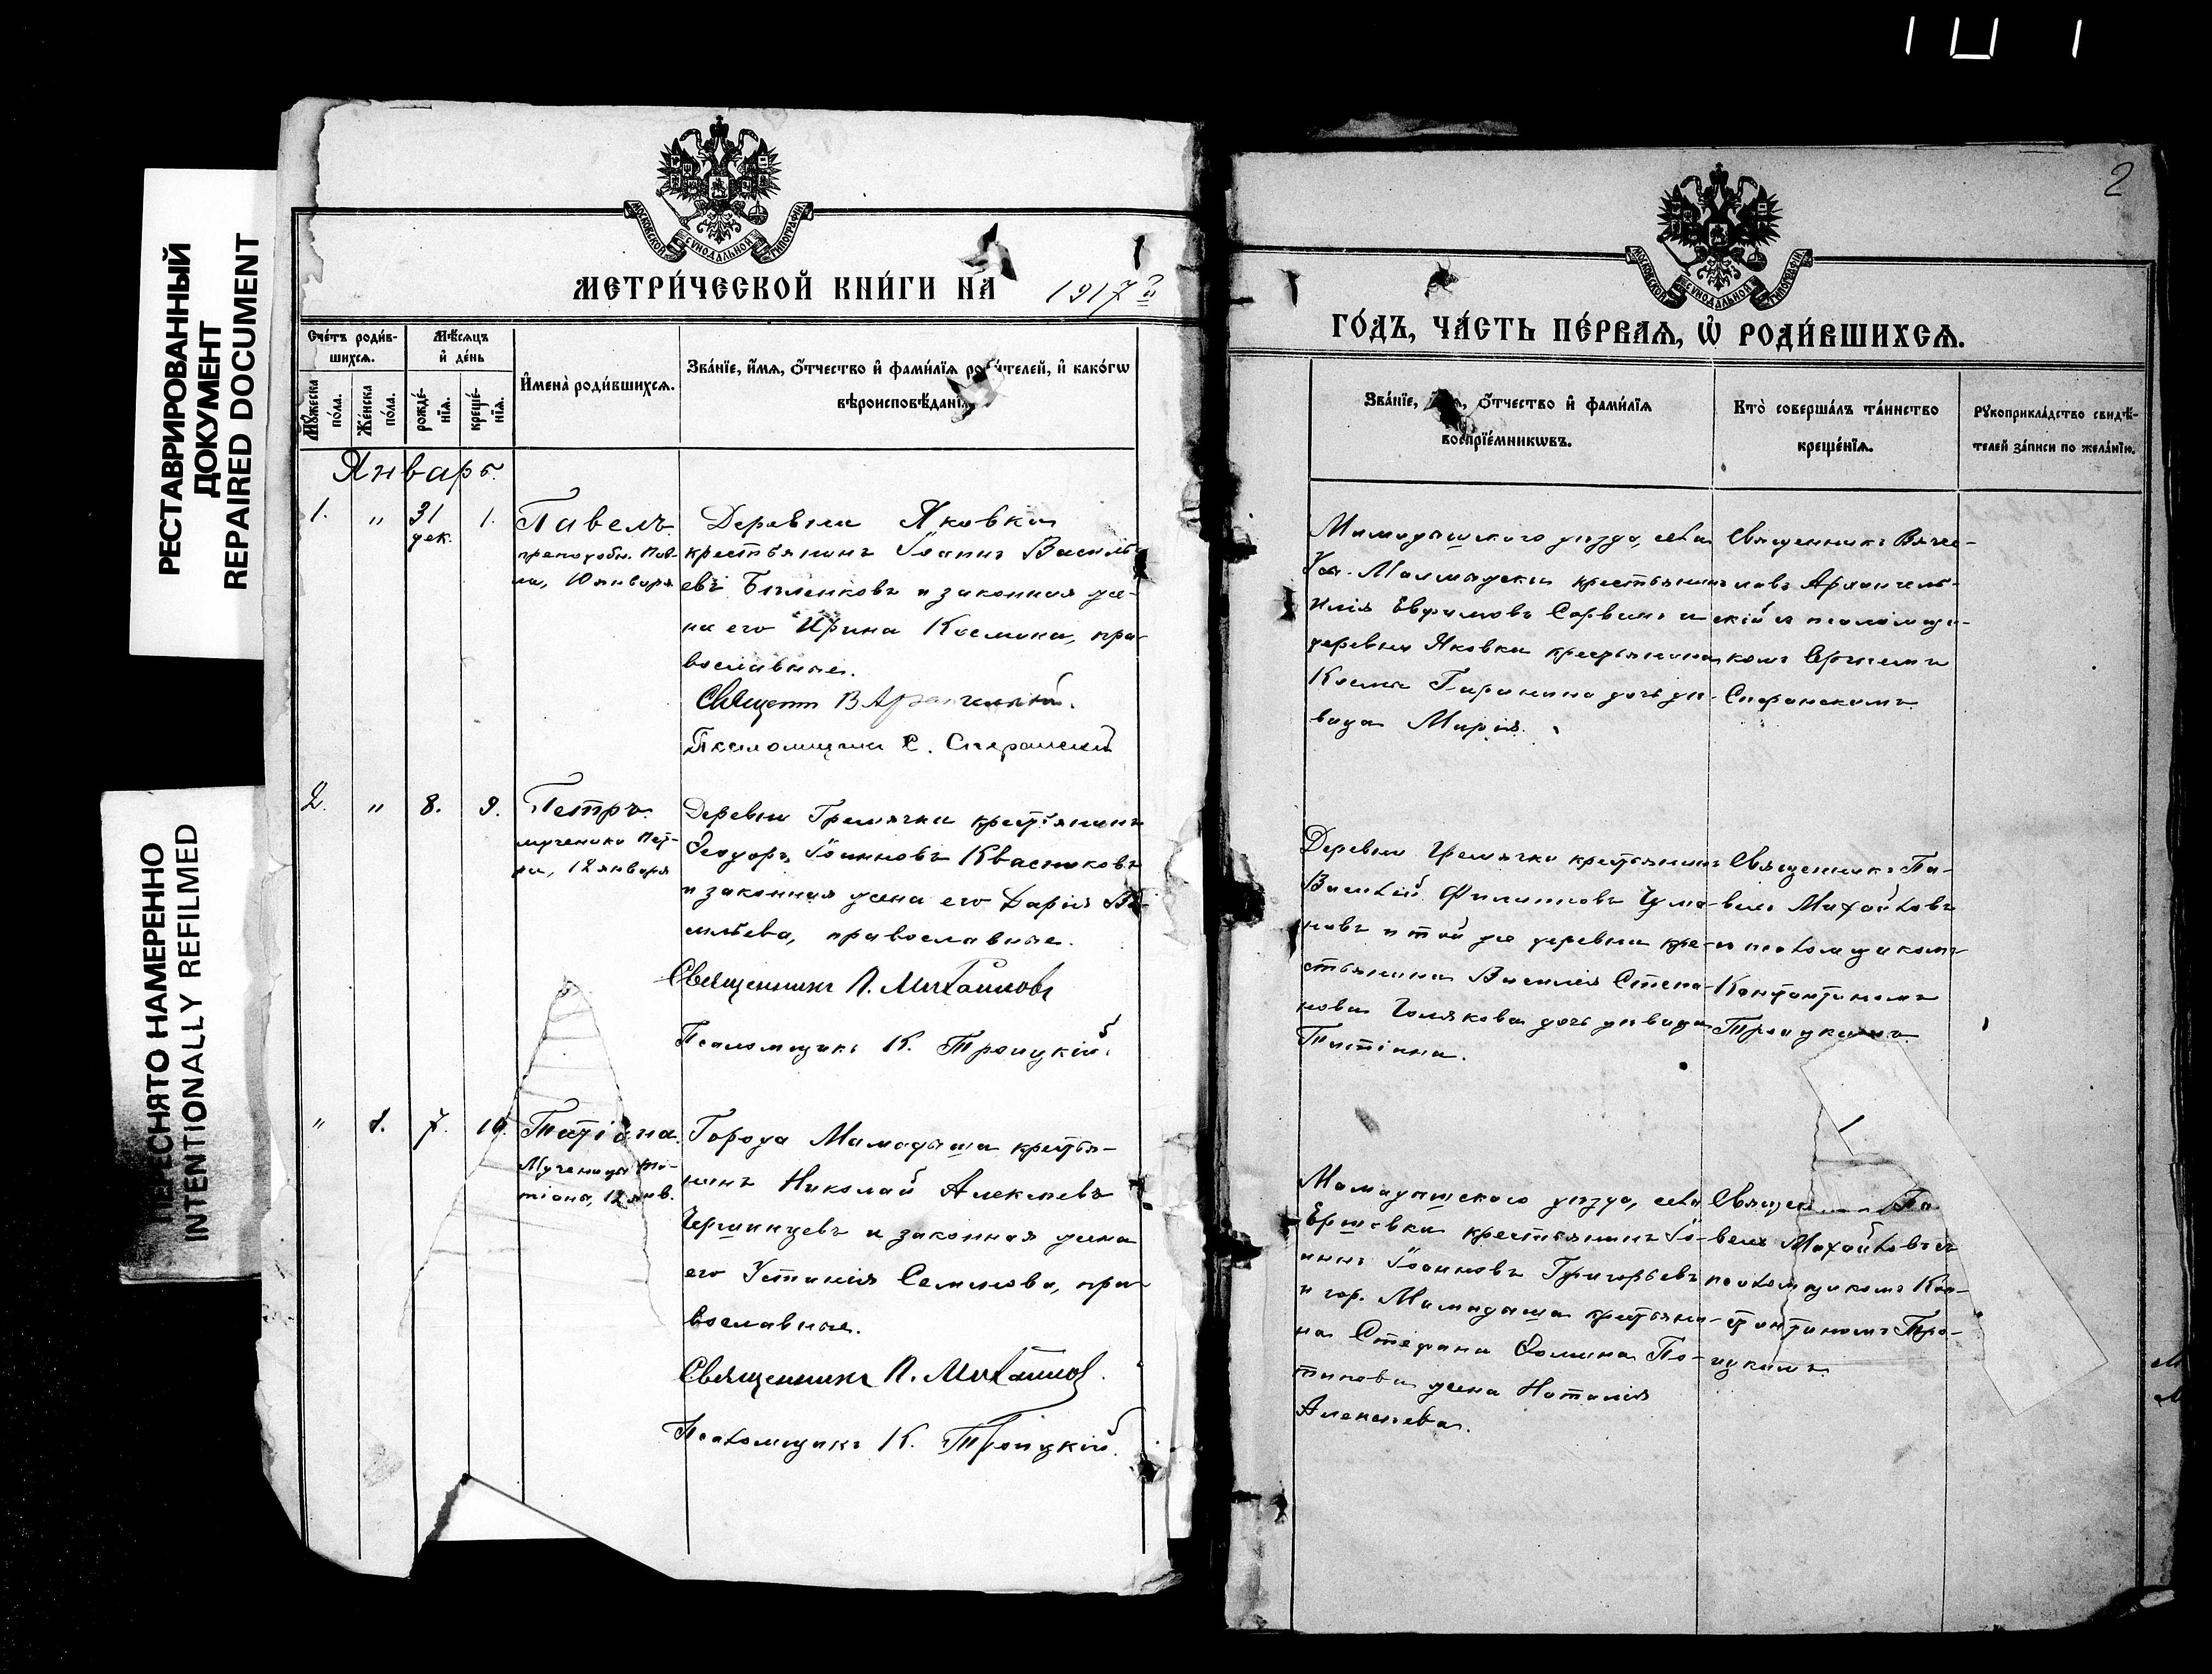 РЕСТАВРИРОВАННЫЙ
ДОКУМЕНТ
REPAIRED DOCUMENT
ПЕРЕСНЯТО НАМЕРЕННО
INTENTIONALLY REFILMED
МОСКОВСКОЙ СѴНОДАЛЬНОЙ ТИПОГРАФІИ
МЕТРИ́ЧЕСКОЙ КНИ́ГИ НА 1917й
Сче́тъ роди́в-
шихсѧ.
Мѣ́сѧцъ
и҆ де́нь
Мꙋ́жеска
по́ла.
Же́нска
по́ла.
рожде́-
нїѧ.
креще́-
нїѧ.
И҆мена̀ роди́вшихсѧ.
Зва́нїе, и҆́мѧ, ѻ҆́тчество и҆ фами́лїѧ роди́телей, и҆ како́гѡ
вѣроисповѣ́данїѧ
Январь.
1. " 31 дек. 1.
Павелъ
преподобн. Пав-
ла, 10 января
Деревни Яковки
крестьянинъ Іоаннъ Василь-
евъ Быленковъ и законная же-
на его Ирина Космина, пра-
вославные.
Священн В Архангельскій.
Псаломщикъ С. Сперанскій
2. " 8. 9.
Петръ.
мученика Пет-
ра, 12 января
Деревни Гремячки крестьянинъ
Ѳеодоръ Іоанновъ Квасниковъ
и законная жена его Дарія Ва-
сильева, православные.
Священникъ П. Михайловъ
Псаломщикъ К. Троицкій.
" 1. 7. 10.
Татіана.
Мученицы Та-
тіаны, 12 янв.
Города Мамадыша крестья-
нинъ Николай Алексѣевъ
Чершинцевъ и законная жена
его Устинія Семенова, пра-
вославные.
Священникъ П. Михайлов
Псаломщикъ К. Троицкій.
2
МОСКОВСКОЙ СѴНОДАЛЬНОЙ ТИПОГРАФІИ
ГО́ДЪ, ЧА́СТЬ ПЕ́РВАѦ, Ѡ҆ РОДИ́ВШИХСѦ.
Зва́нїе, и҆́мѧ, ѻ҆́тчество и҆ фами́лїѧ
воспрїе́мникѡвъ.
Кто̀ соверша́лъ та́инство
креще́нїѧ.
Рꙋкоприкла́дство свидѣ́-
телей за́писи по жела́нїю.
Мамадышскаго уѣзда, села
Ус. Малмыжки крестьянинъ
Илія Евѳимовъ Сорвинъ и
деревни Яковки крестьянина
Космы Гаранина дочь дѣ-
вица Марія.
Священникъ Вяче-
славъ Архангель-
скій и псаломщи-
комъ Сергѣемъ
Сперанскимъ
Деревни Гремячки крестьянинъ
Василій Филипповъ Чума-
ковъ и той же деревни кре-
стьянина Василія Степа-
нова Голякова дочь дѣвица
Татіана.
Священникъ Па-
велъ Михайловъ
и псаломщикомъ
Константиномъ
Троицкимъ
Мамадышскаго уѣзда, села
Ершовки крестьянинъ Іо-
аннъ Іоанновъ Григорьевъ
и гор. Мамадыша крестьяни-
на Стефана Ѳомина По-
тинова жена Наталія
Алексѣева.
Священ Па-
велъ Михайловъ съ
псаломщикомъ Кон-
стантиномъ Тро-
ицкимъ.